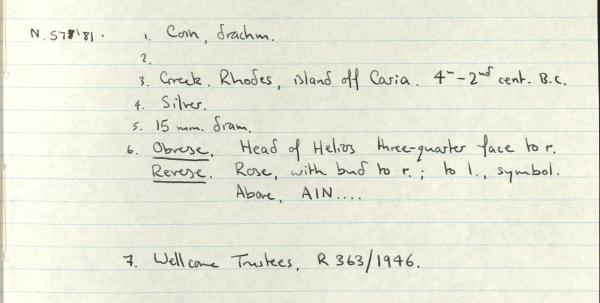 N. 578'81. 1. Coin, drachm.
2.
3. Greek. Rhodes, island off Caria. 4th-2nd cent. B.C.
4. Silver.
5. 15 mm. diam.
6. Obverse. Head of Helios three-quarter face to r.
Reverse. Rose, with bud to r.; to l., symbol.
Above, AIN....
7. Wellcome Trustees, R 363/1946.